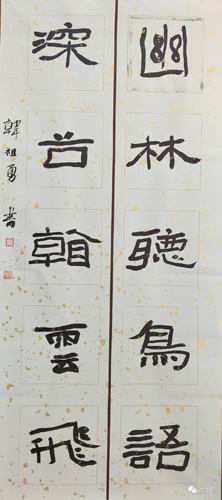 幽林聽鳥語
深谷看雲飛
韓祖勇書